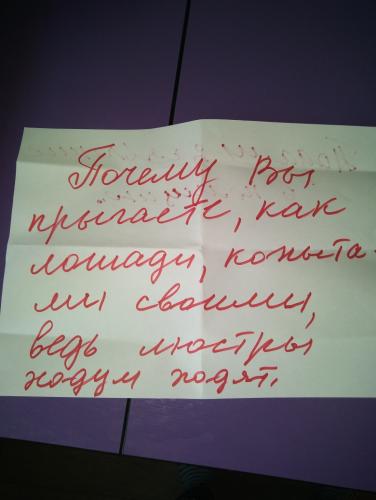 Почему Вы
прыгаете, как
лошади, копыта-
ми своими,
ведь люстры
ходум ходят.